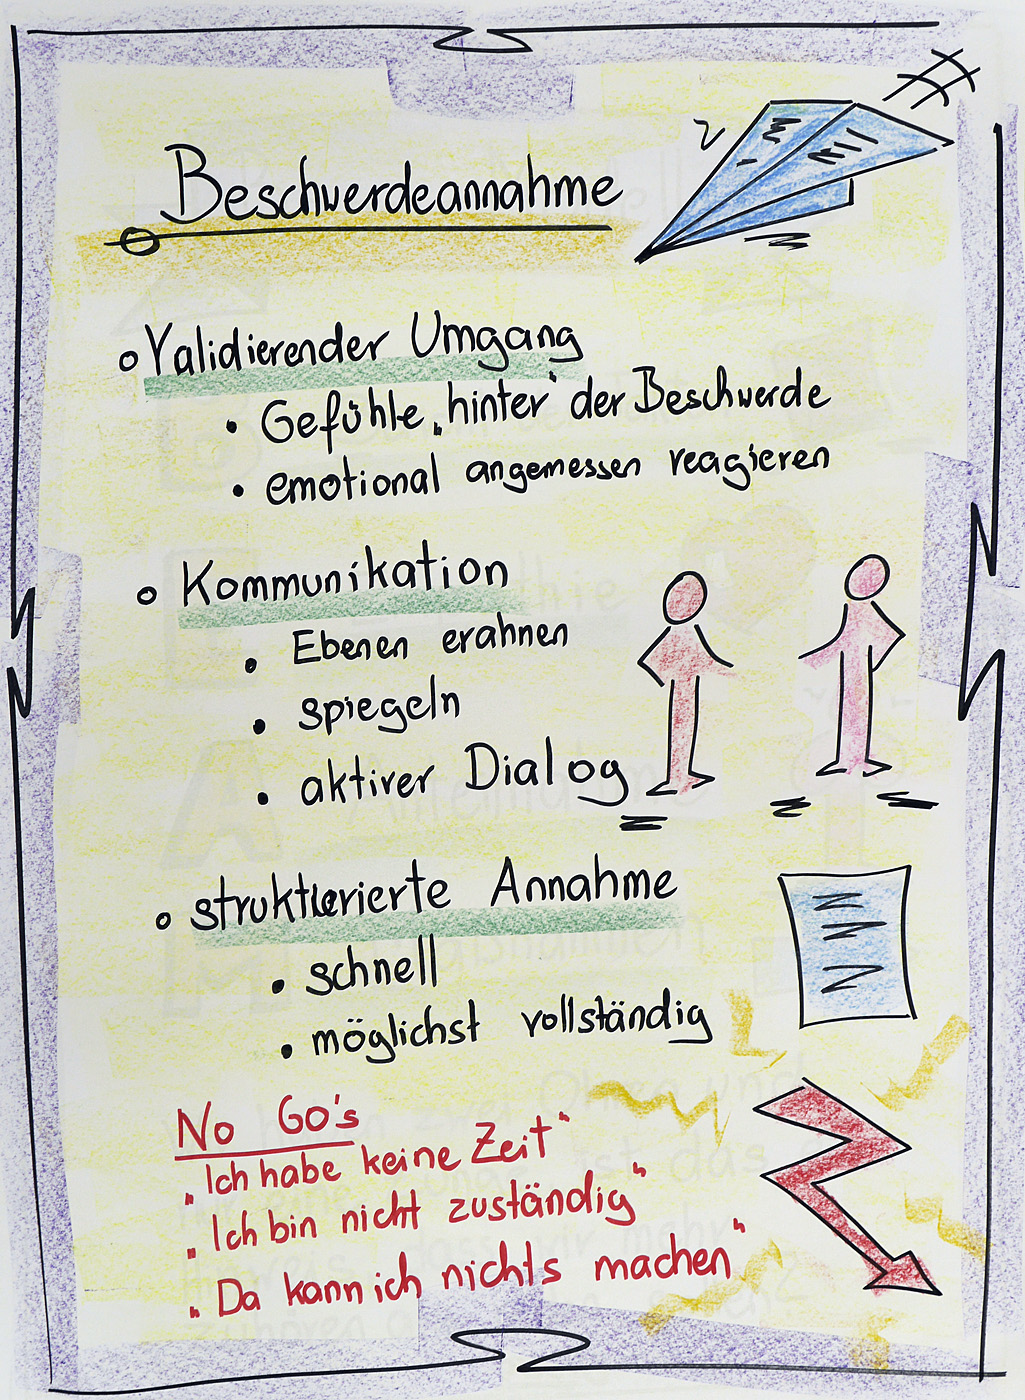 Beschwerdeannahme
o Validierender Umgang
• Gefühle „hinter“ der Beschwerde
• emotional angemessen reagieren
o Kommunikation
• Ebenen erahnen
• spiegeln
• aktiver Dialog
o strukturierte Annahme
• schnell
• möglichst vollständig
No Go's
„Ich habe keine Zeit“
„Ich bin nicht zuständig“
„Da kann ich nichts machen“